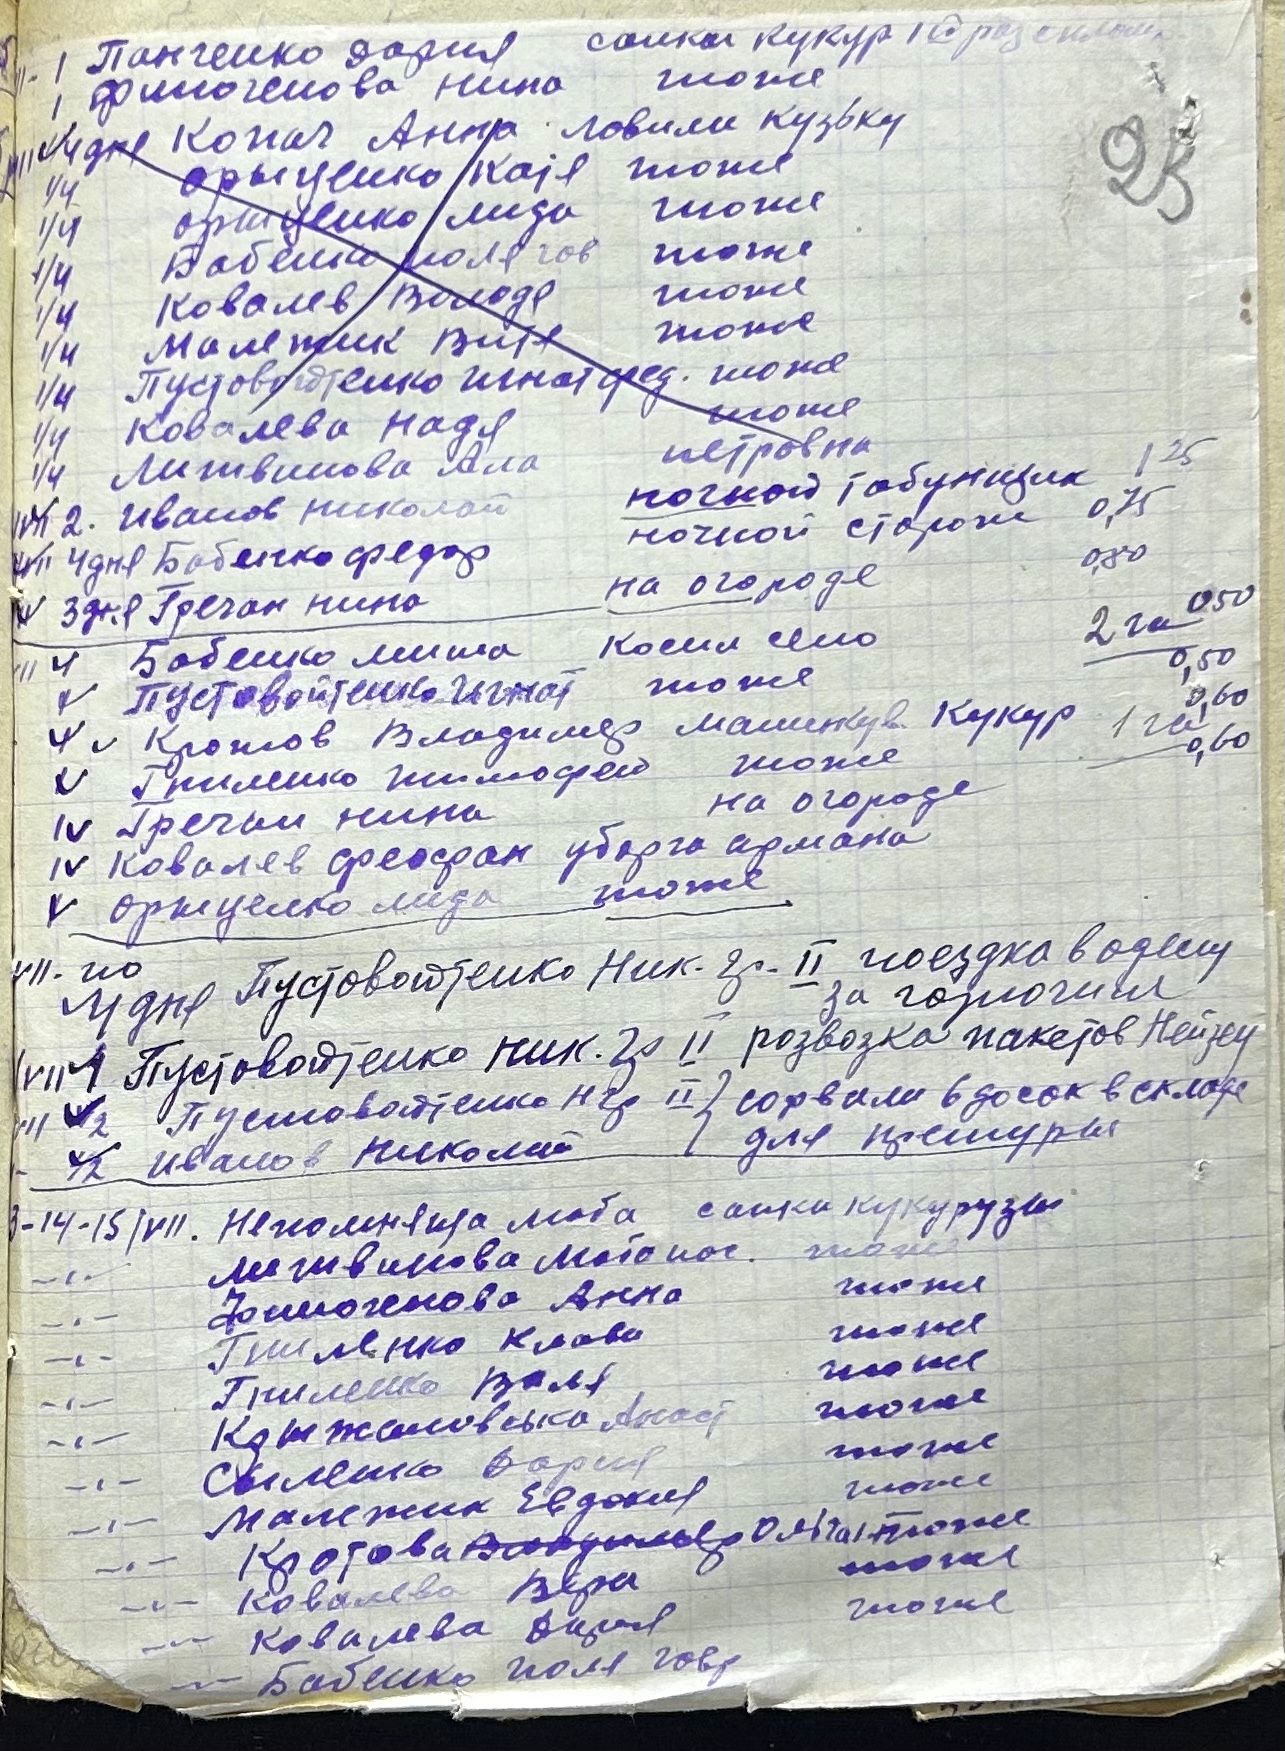 1 Панченко Дария сапки кукур 1й раз
1 Филоженова Нина тоже
25
4 дня Копач Анна ловили кузьку
1/4 Орищенко Катя тоже
1/4 Орищенко Лида тоже
1/4 Бабенко Поля гов тоже
1/4 Ковалев Володя тоже
1/4 Малежик Витя тоже
1/4 Пустовойтенко Игнат фед. тоже
1/4 Ковалева Надя тоже
1/4 Литвинова Ала петровна
2. Иванов Николай ночной табунщик 1 25
4 дня Бабенко федор ночной сторож 0,75
3 дня Гречан нина на огороде 0,80
4 Бабенко миша косил сено 2 га 0,50
Пустовойтенко Игнат тоже 0,50
Кротов Владимер машинкув. кукур 1 га 0,60
Гниленко тимофей тоже 0,60
Гречан нина на огороде
Ковалев феофан уборга армана
Орищенко лида тоже
VII. по
4 дня Пустовойтенко Ник. гр. II поездка в одессу
за горючим
VII 1 Пустовойтенко Ник. гр II развозка пакетов
1/2 Пустовойтенко Н гр II сорвали 6 досок в складе
1/2 Иванов Николай для
-14-15/VII. Непомняща Люба сапки кукурузы
-"- Литвинова Мото пос. тоже
-"- Филоженова Анна тоже
-"- Гниленко Клава тоже
-"- Гниленко Валя тоже
-"- Крыжановська Анаст тоже
-"- Сыленко Дария тоже
-"- Малежик Евдокия тоже
-"- Кротова Владимер Ольга тоже
-"- Ковалева Вера тоже
-"- Ковалева Дария тоже
-"- Бабенко Поля говр